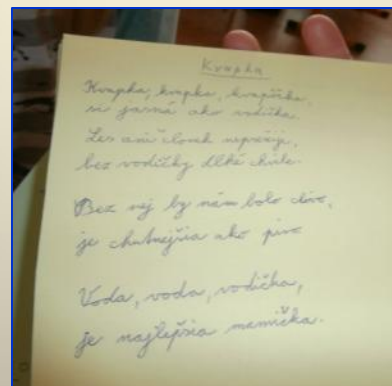 Kvapka
Kvapka, kvapka, kvapôčka,
si jasná ako vodička.
Les ani človek neprežije,
bez vodičky dlhé chvíle.
Bez nej by nám bolo clivo,
je chutnejšia ako pivo
Voda, voda, vodička,
je najlepšia mamička.